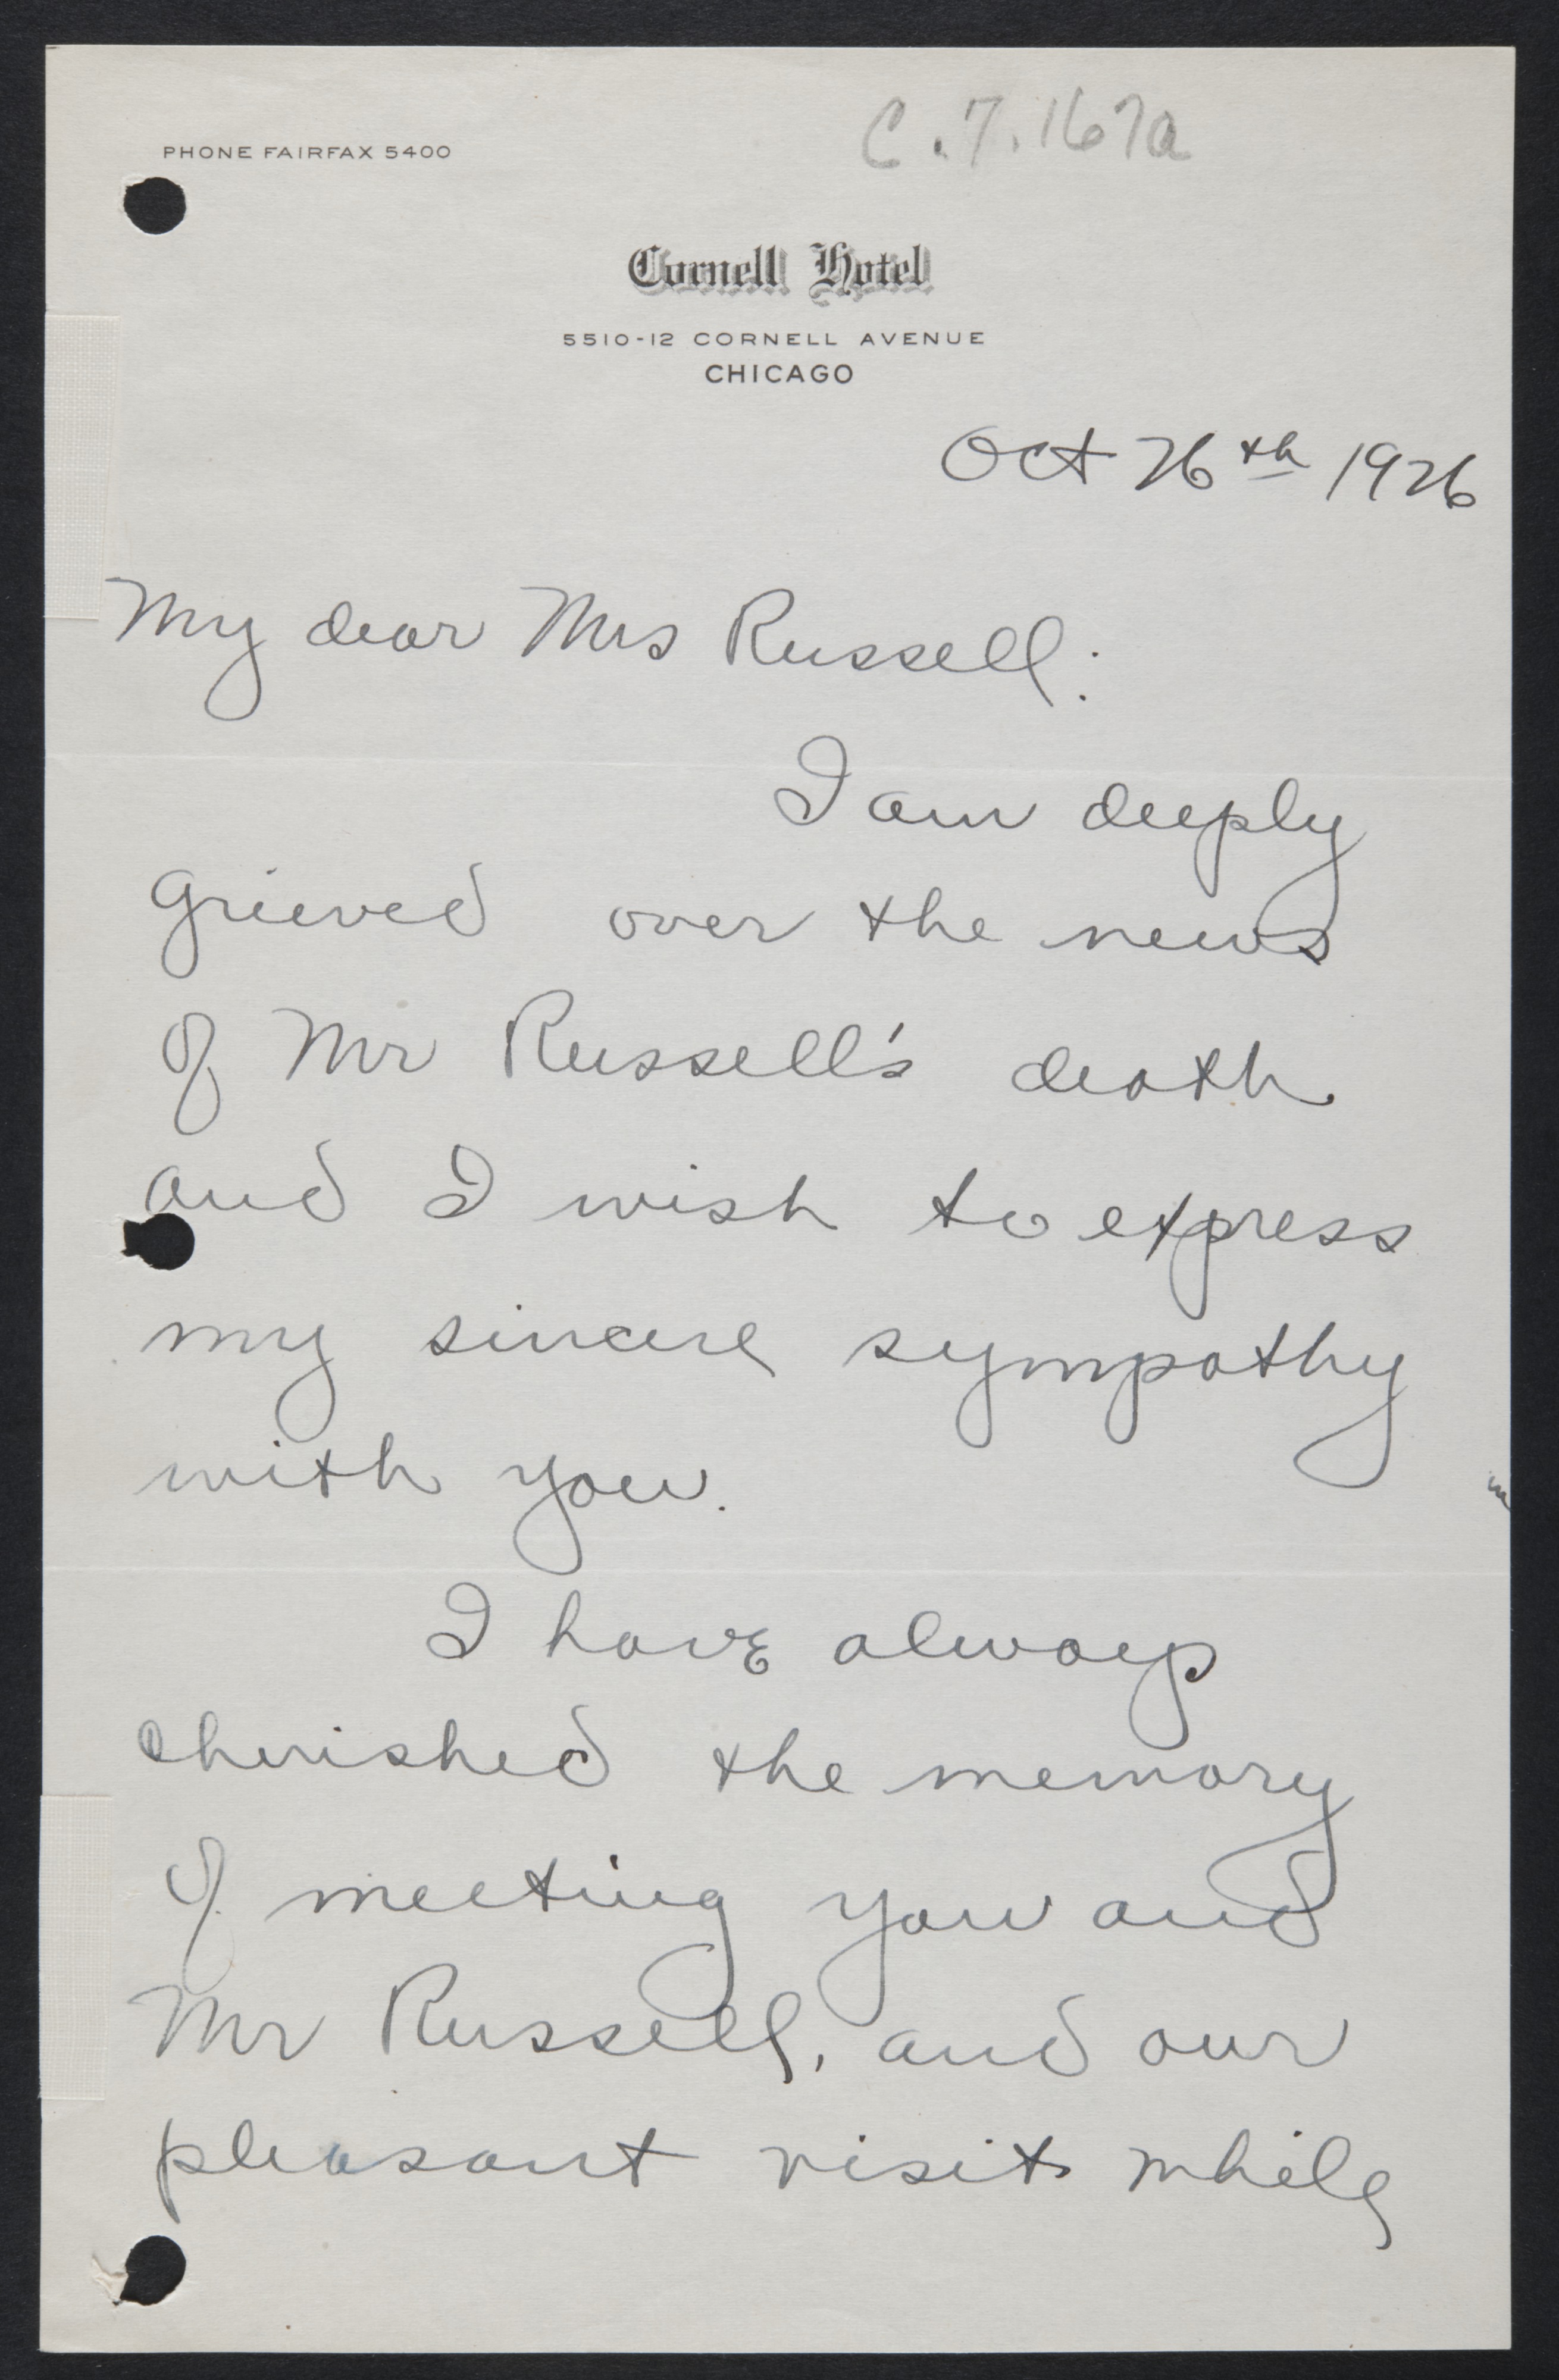 C.7.167a
PHONE FAIRFAX 5400
Cornell Hotel
5510-12 CORNELL AVENUE
CHICAGO
Oct 26th 1926
My dear Mrs Russell:
I am deeply
grieved over the news
of Mr Russell's death
and I wish to express
my sincere sympathy
with you.
I have always
cherished the memory
of meeting you and
Mr Russell, and our
pleasant visit while